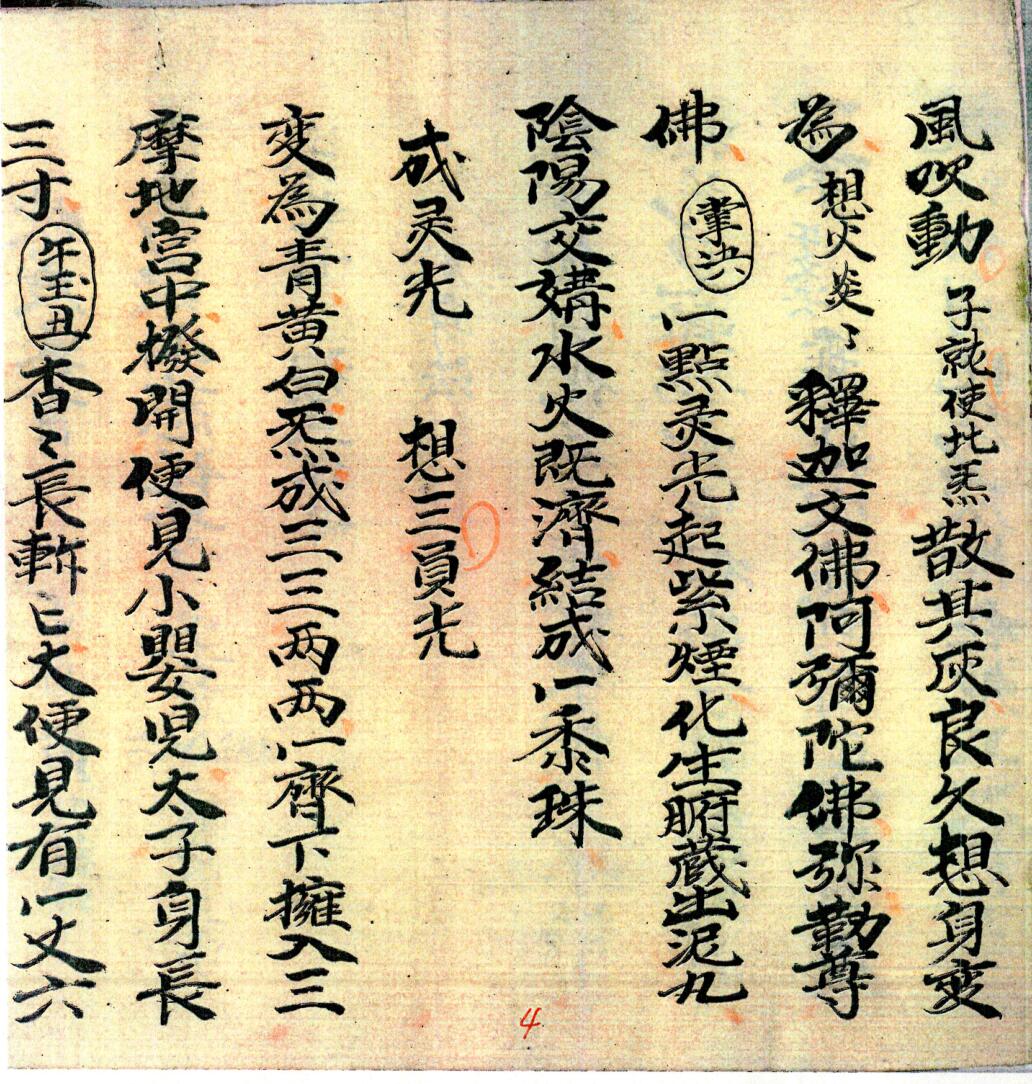 風吹動 子就使此炁散其灰良久想身变
為 想火炎〻 釋迦文佛阿彌陀佛弥勤尊
佛 掌决 一點灵光起紫煙化生腑蔵出泥丸
陰陽交媾水火既濟結成一黍珠
成灵光 想三員光
变為青黄白炁成三三两两一齊下擁入三
摩地宫中撥開便見小嬰児太子身長
三寸 午玉丑 杳〻長斬〻大便見有一丈六
4